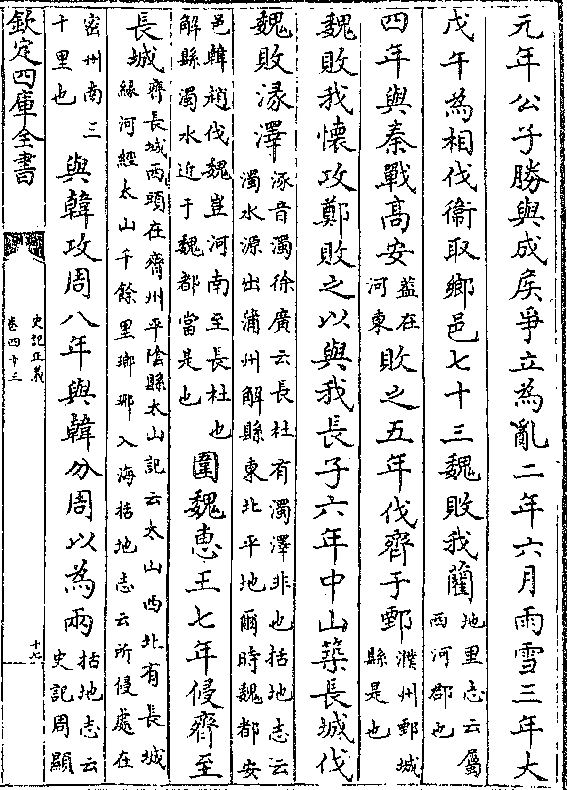 元年公子勝與成侯爭立為亂二年六月雨雪三年大
戊午為相伐衞取鄉邑七十三魏敗我藺
地里志云屬
西河郡也
四年與秦戰高安
蓋在
河東
敗之五年伐齊于鄄
濮州鄄城
縣是也
魏敗我懷攻鄭敗之以與我長子六年中山築長城伐
魏敗湪澤
涿音濁徐廣云長杜有濁澤非也括地志云
濁水源出蒲州解縣東北平地爾時魏都安
邑韓趙伐魏豈河南至長杜也
解縣濁水近于魏都當是也
圍魏惠王七年侵齊至
長城
齊長城西頭在齊州平陰縣太山記云太山西北有長城
緣河經太山千餘里瑯琊入海括地志云所侵處在
密州南三
十里也
與韓攻周八年與韓分周以為兩
括地志云
史記周顯
欽定四庫全書
史記正義
卷四十三
十七